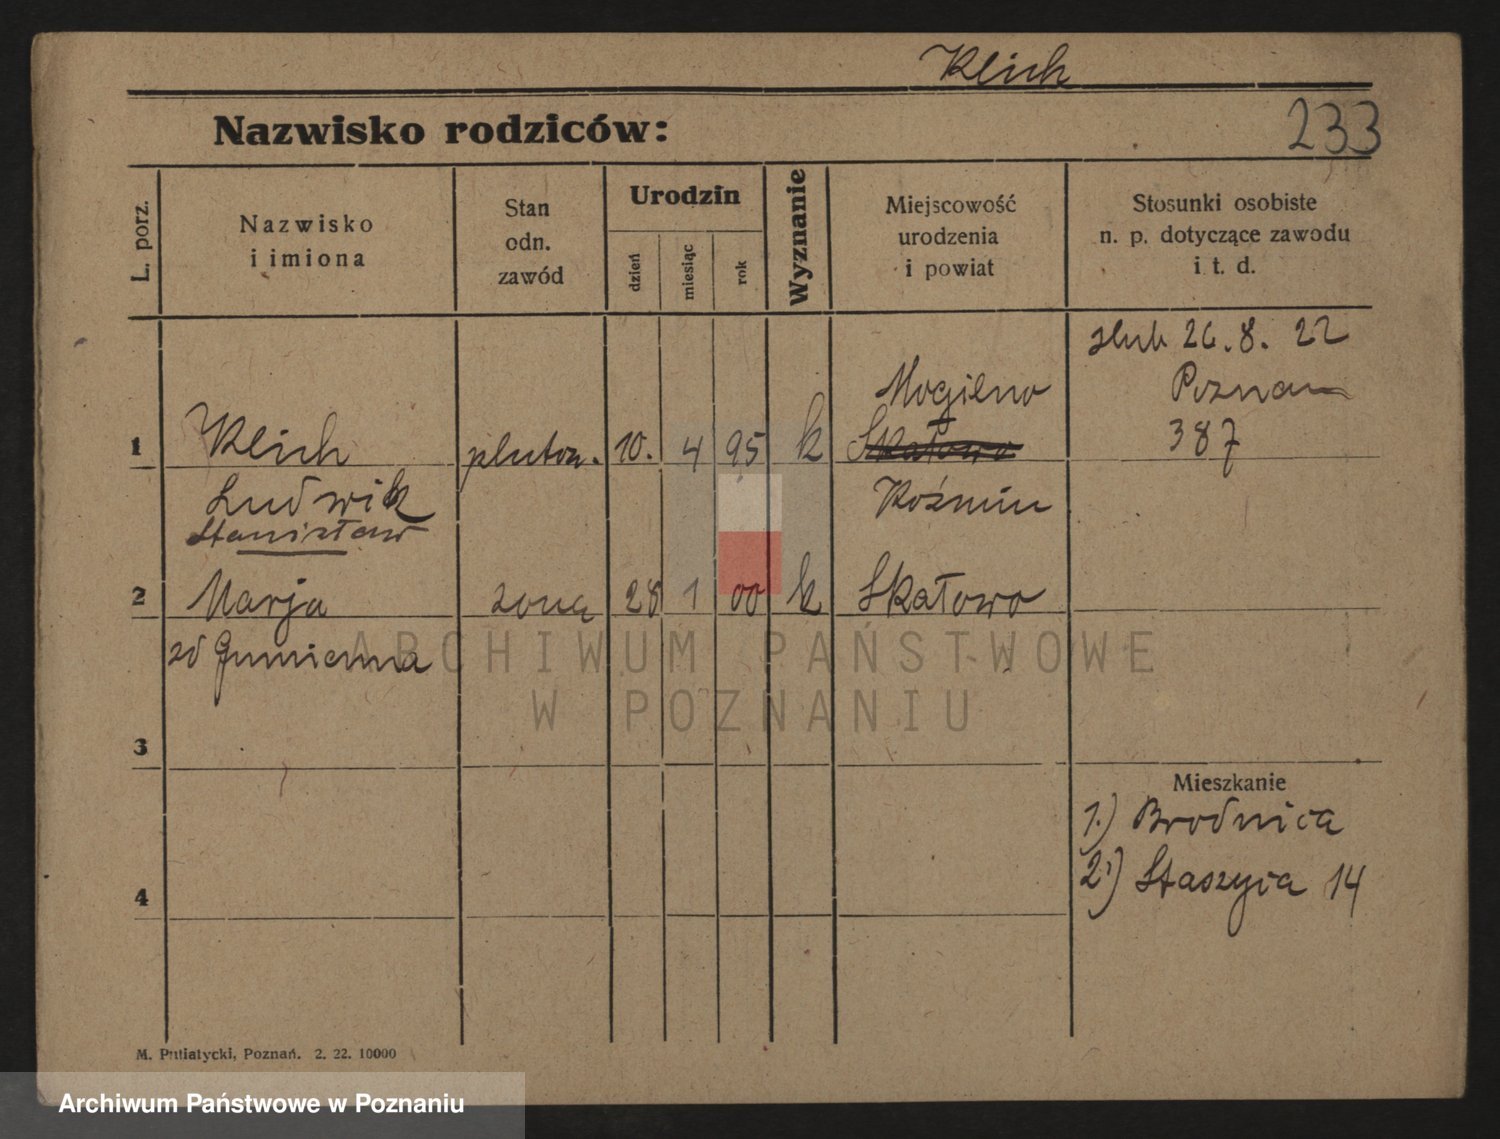 Klich
Nazwisko rodziców:
233
L. porz.
Nazwisko
i imiona
Stan
odn.
zawód
Urodzin
dzień
miesiąc
rok
Wyznanie
Miejscowość
urodzenia
i powiat
Stosunki osobiste
n. p. dotyczące zawodu
i t. d.
ślub 26. 8. 22
Poznań
387
1 Klich pluton. 10. 4 95 k Mogilno
Skałowo
Ludwik Koźmin
Stanisław
2 Marja żona 28 1 00 k Skałowo
zd Gumienna
ARCHIWUM PAŃSTWOWE
W POZNANIU
3
Mieszkanie
1.) Brodnica
2.) Staszyca 14
4
M. Putiatycki, Poznań. 2. 22. 10000
Archiwum Państwowe w Poznaniu